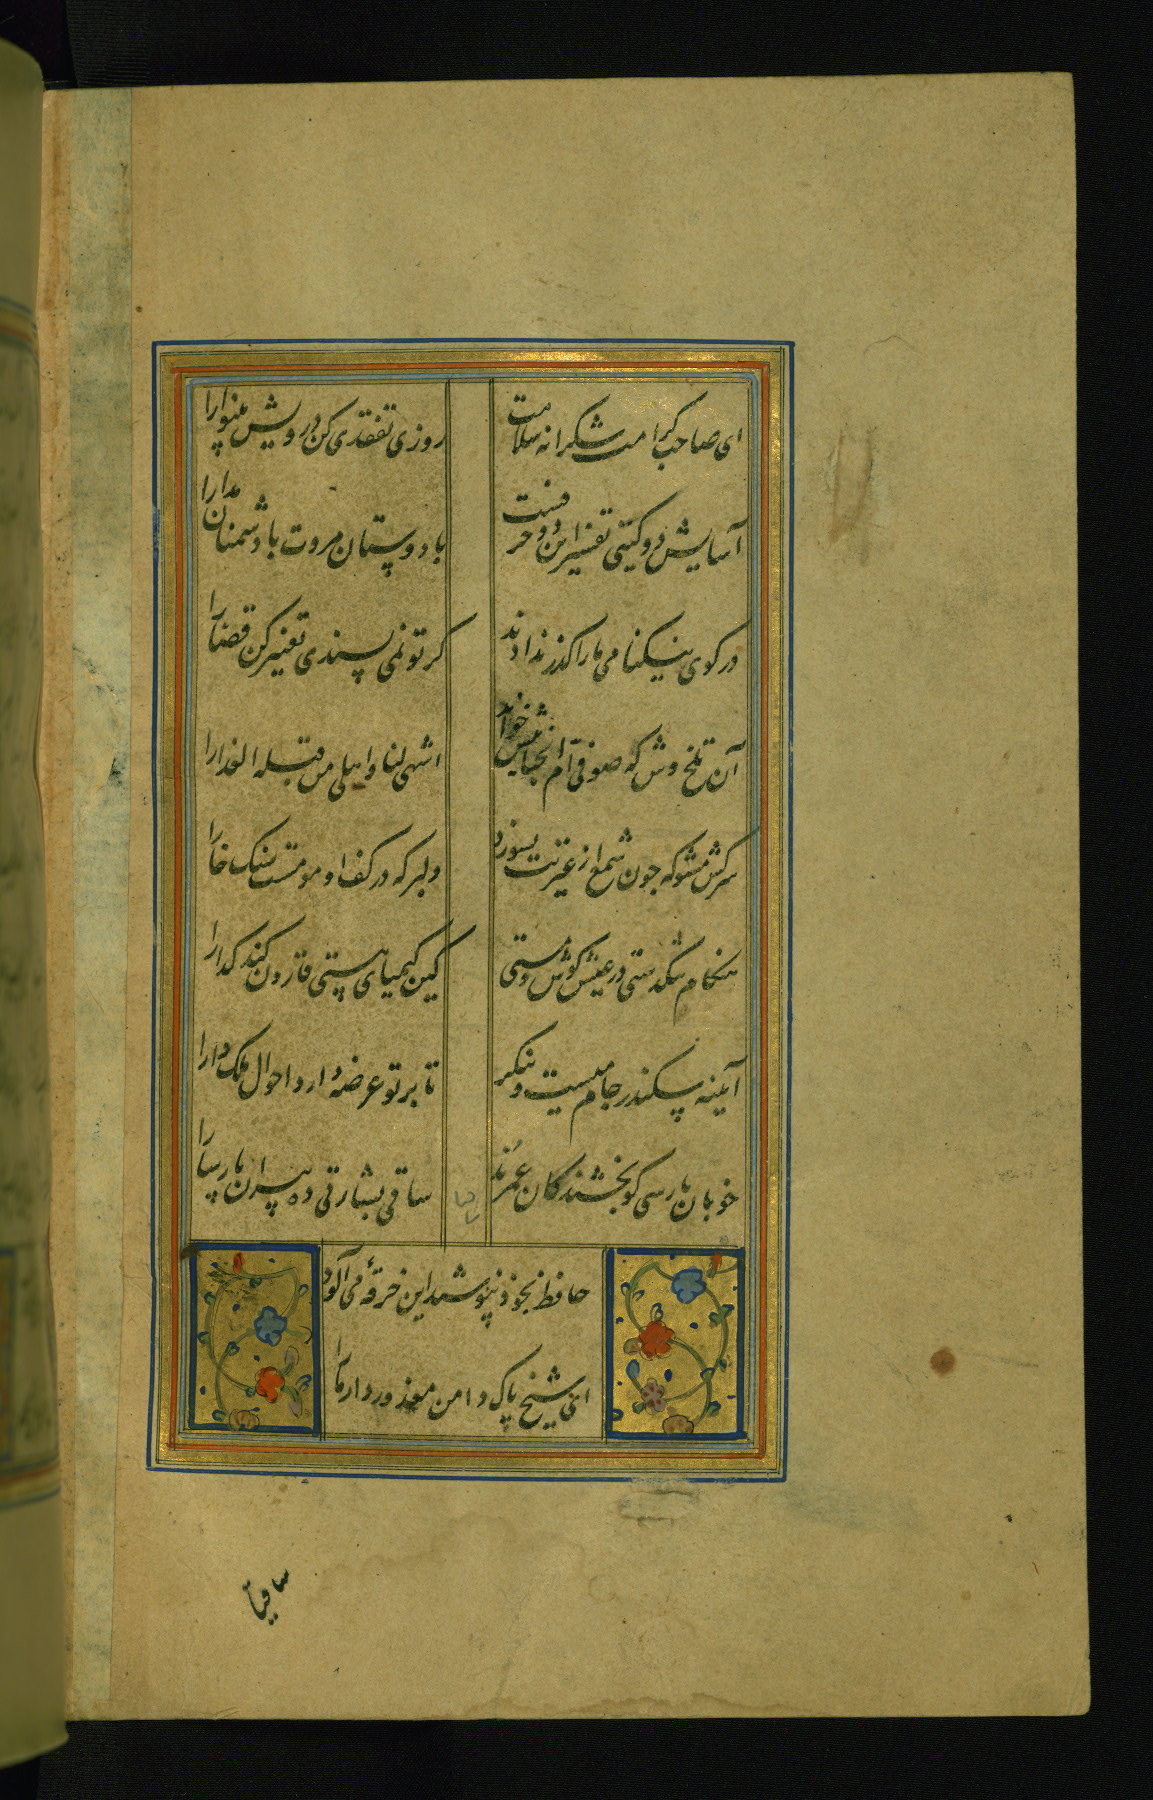 ای صاحب کرامت شکرانه سلامت
روزی تفقدی کن درویش بینوا را
آسایش دو گیتی تفسیر این دو حرفست
با دوستان مروت با دشمنان مدارا
در کوی نیکنامی ما را کذر ندادند
کر تو نمی پسندی تغییر کن قضا را
آن تلخ وش که صوفی ام الخبایثش خواند
اشهی لنا و احلی من قبله العذارا
سرکش مشو که چون شمع از غیرتت بسوزد
دلبر که در کف او مومست سنک خارا
هنکام تنکدستی در عیش کوش و مستی
کین کیمیای هستی قارون کند کدا را
آیینه سکندر جام میست بنکر
تا بر تو عرضه دارد احوال ملک دارا
خوبان پارسی کو بخشندکان عمرند
ساقی بشارتی ده پیران پارسا را
حافظ بخود نپوشید این خرقهٔ می آلود
ای شیخ پاک دامن معذور دار ما را
ساقیا